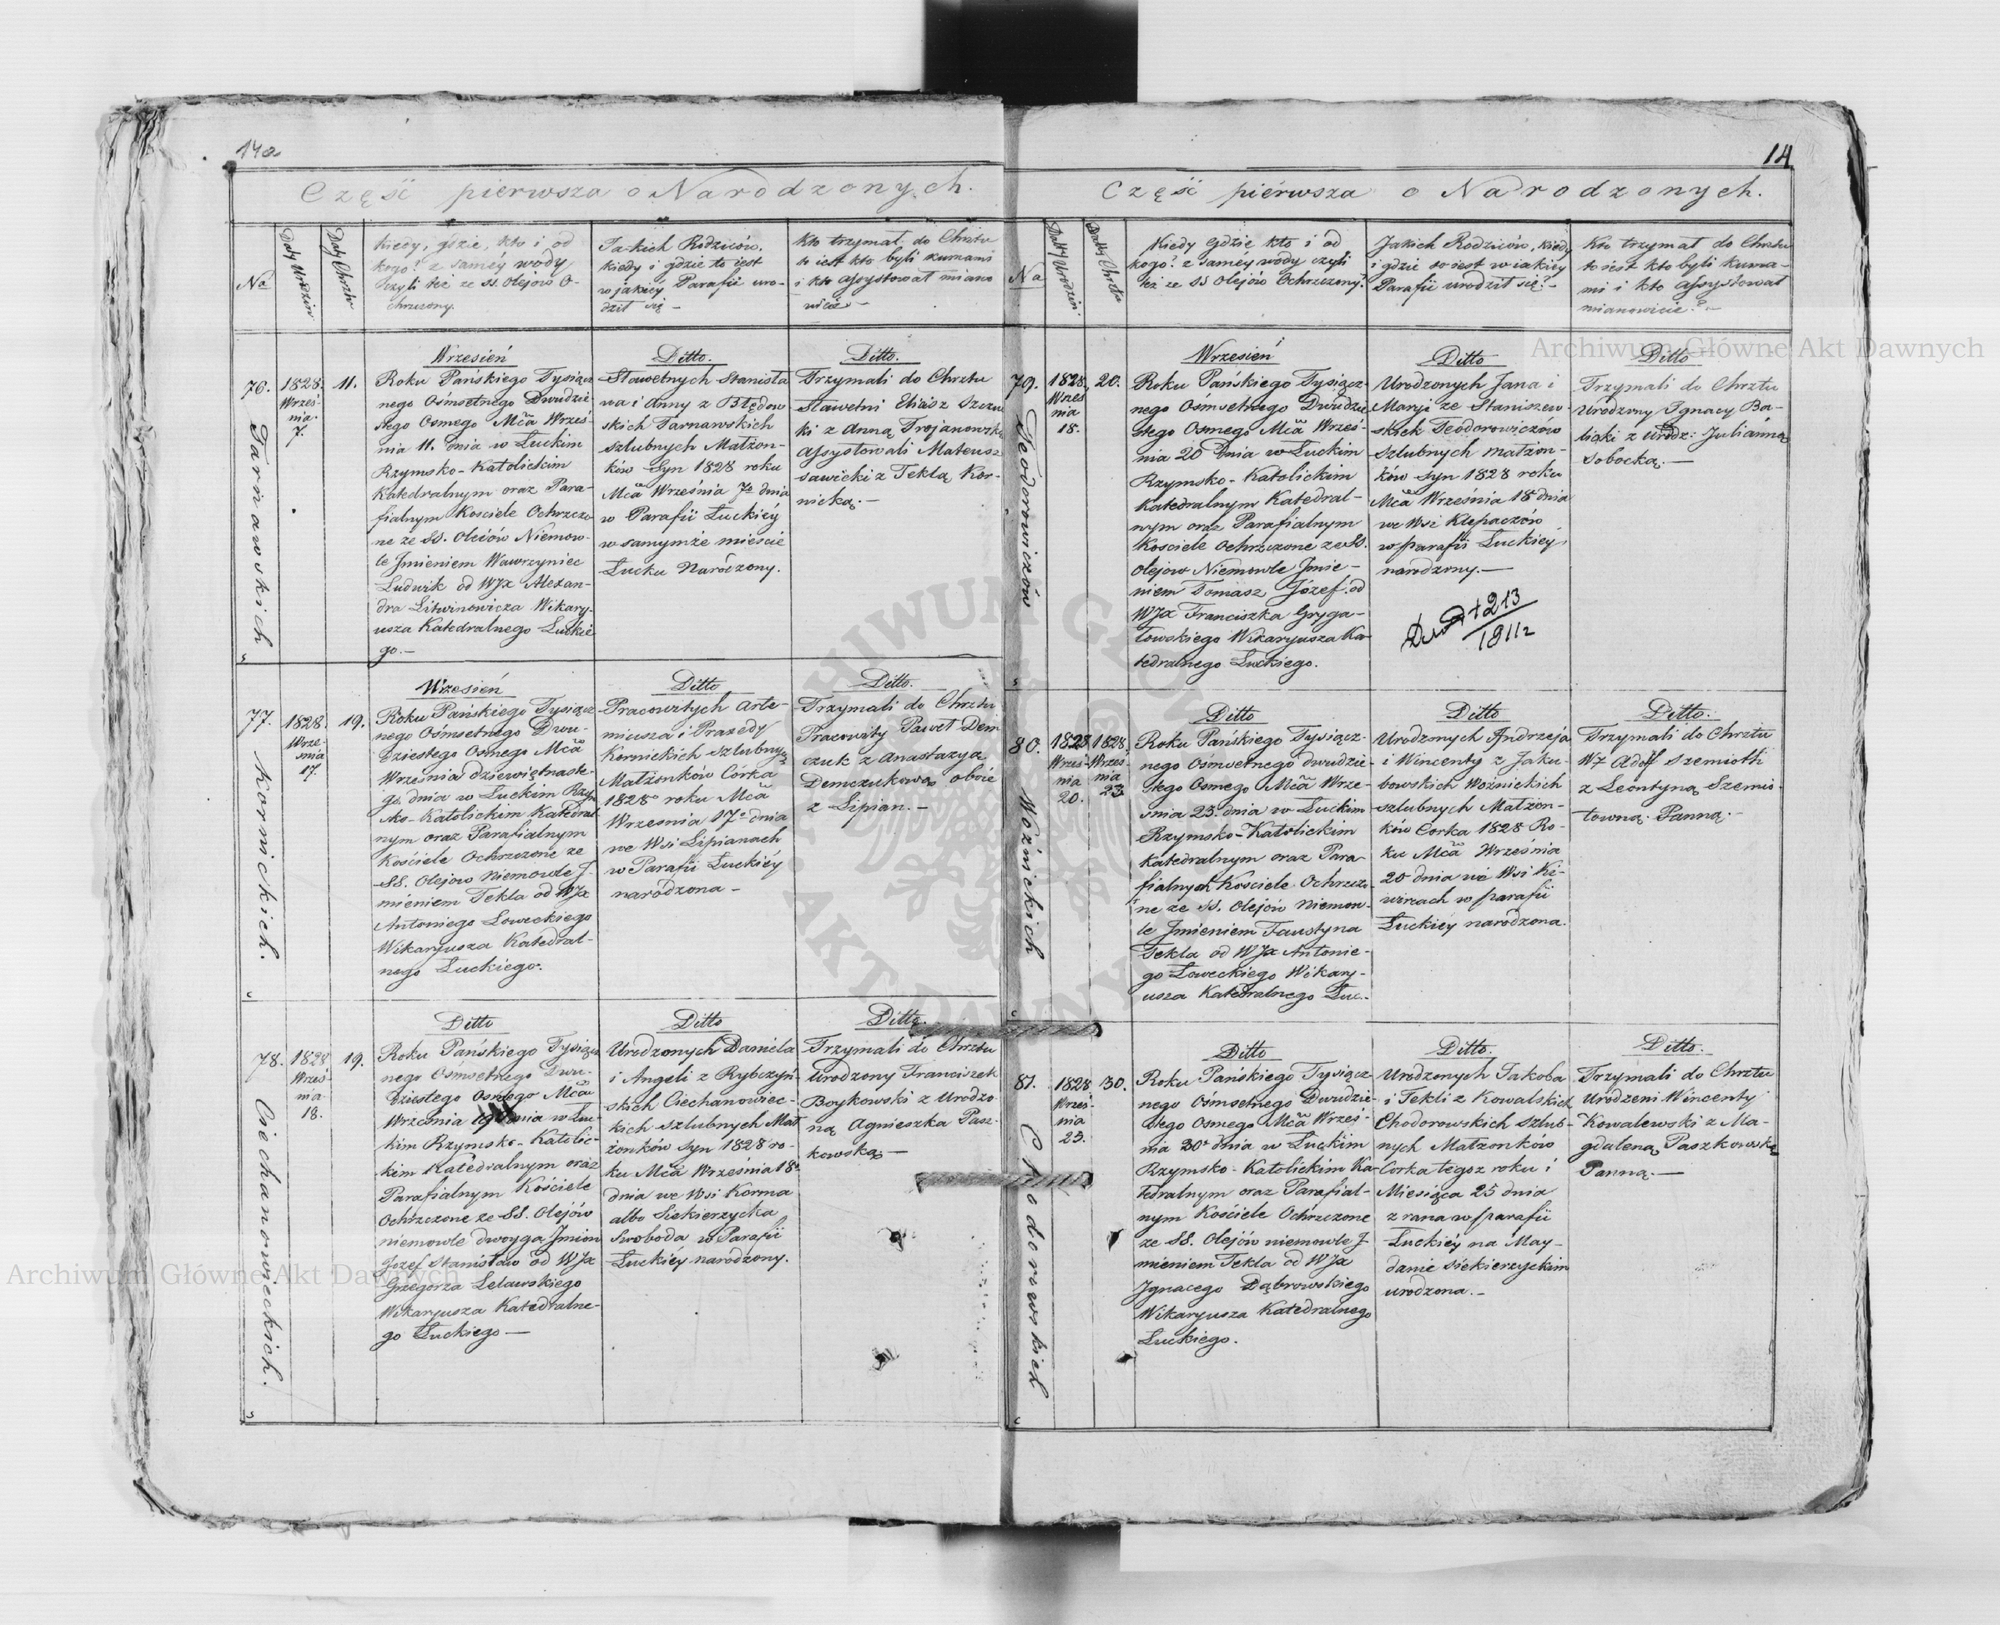 14a
Część pierwsza o Narodzonych.
No
Daty Urodzin
Daty Chrztu
Kiedy, gdzie, kto i od
kogo? z saméy wody
czyli też ze SS. Olejów O-
chrzczony.
Jakich Rodziców,
kiedy i gdzie to iest
w jakiéy Parafii uro-
dził się —
Kto trzymał do Chrztu
to iest kto byli kumami
i kto assystował miano
wicie —
76.
Tarnawskich
1828.
Wrześ-
nia.
7.
11.
Wrzesień
Roku Pańskiego Tysiącz
nego Ośmsetnego Dwudzie
stego Osmego Mca Wrześ-
nia 11. dnia w Łuckim
Rzymsko-Katolickim
Katedralnym oraz Para-
fialnym Kosciele Ochrzczo
ne ze SS. Oleiów Niemow-
le Jmieniem Wawrzyniec
Ludwik od WJX Alexan-
dra Litwinowicza Wikary-
usza Katedralnego Łuckie
go.—
Ditto.
Sławetnych Stanisła
wa i Anny z Błędow
skich Tarnawskich
szlubnych Małżon-
ków Syn 1828 roku
Mca Września 7o dnia
w Parafii Łuckiéy
w samymże mieście
Łucku Narodzony.
Ditto.
Trzymali do Chrztu
Sławetni Eliasz Szczu
ki z Anną Trojanowską
Assystowali Mateusz
Sawicki z Teklą Kor-
nicką.—
77.
Kornickich.
1828.
Wrze-
snia
17.
19.
Wrzesień
Roku Pańskiego Tysiącz
nego Ośmsetnego Dwu-
dziestego Osmego Mca
Września dziewiętnaste-
go dnia w Łuckim Rzym
sko-Katolickim Katedral
nym oraz Parafialnym
Kościele Ochrzczone ze
SS. Olejow Niemowle J-
mieniem Tekla od WJX
Antoniego Łoweckiego
Wikaryusza Katedral-
nego Łuckiego.
Ditto
Pracowitych Arte-
miusza i Praxedy
Kornickich szlubnych
Małżonków Córka
1828o roku Mca
Wrzesnia 17o dnia
we Wsi Lipianach
w Parafii Łuckiéy
narodzona —
Ditto.
Trzymali do Chrztu
Pracowity Paweł Dem
czuk z Anastazyą
Demczukową oboie
z Lipian.—
78.
Ciechanowieckich.
1828
Wrześ-
nia
18.
19.
Ditto
Roku Pańskiego Tysiącz
nego Ośmsetnego Dwu-
dziestego Osmego Mca
Września 19 dnia w Łuc-
kim Rzymsko-Katolic-
kim Katedralnym oraz
Parafialnym Kościele
Ochrzczone ze SS. Olejów
niemowle dwoyga Jmion
Jozef Stanisław od WJX
Grzegorza Lelawskiego
Wikaryusza Katedralne-
go Łuckiego —
Ditto
Urodzonych Daniela
i Angeli z Rybczyń-
skich Ciechanowiec-
kich szlubnych Mał
żonków syn 1828 ro-
ku Mca Września 18o
dnia we Wsi Korma
albo Siekierzycka
Swoboda w Parafii
Łuckiéy narodzony.
Ditto.
Trzymali do Chrztu
Urodzony Franciszek
Boykowski z Urodzo
ną Agnieszka Pasz-
kowską —
14
Część pierwsza o Narodzonych.
No
Datty Urodzin.
Datty Chrztu
Kiedy gdzie kto i od
kogo? z saméy wody czyli
też ze SS Olejów Ochrzczony?
Jakich Rodziców, kiedy
i gdzie to iest w iakiéy
Parafii urodził się? —
Kto trzymał do Chrztu
to iest kto byli kuma-
mi i kto assystował
mianowicie? —
79.
Teodorowiczów
1828.
Wrześ
nia
18.
20.
Wrzesień
Roku Pańskiego Tysiącz-
nego Ośmsetnego Dwudzie
stego Osmego Mca Wrześ-
nia 20 Dnia w Łuckim
Rzymsko-Katolickim
Katedralnym Katedral-
nym oraz Parafialnym
Kościele Ochrzczone ze SS.
Olejow Niemowle Jmie-
niem Tomasz Józef od
WJX Franciszka Gryga-
łowskiego Wikaryusza Ka
tedralnego Łuckiego.
Ditto
Urodzonych Jana i
Maryi ze Staniszew-
skich Teodorowiczów
szlubnych małżon-
ków syn 1828 roku
Mca Września 18 dnia
we Wsi Klepaczów
w parafii Łuckiéy
narodzony.—
213
Ditto
Trzymali do Chrztu
Urodzony Ignacy Ba-
liński z Urodz: Julianną
Sobocką.—
80.
Woźnickich
1828
Wrześ-
nia
20.
1828.
Wrześ-
nia
23
Ditto
Roku Pańskiego Tysiącz-
nego Ośmsetnego dwudzie
stego Osmego Mca Wrze-
śnia 23. dnia w Łuckim
Rzymsko-Katolickim
Katedralnym oraz Para-
fialnym Kosciele Ochrzczo-
ne ze SS. Olejów Niemow-
le Jmieniem Faustyna
Tekla od WJX Antonie-
go Łoweckiego Wikary-
usza Katedralnego Łuc.
Ditto
Urodzonych Andrzeja
i Wincenty z Jaku-
bowskich Woźnickich
szlubnych Małżon-
ków Corka 1828 Ro-
ku Mca Września
20 dnia we Wsi Ki-
wircach w parafii
Łuckiéy narodzona.
Ditto.
Trzymali do Chrztu
WJ Adolf Szemioth
z Leontyną Szemio-
towną Panną.—
81.
Chodorowskich
1828
Wrześ-
nia
25.
30.
Ditto
Roku Pańskiego Tysiącz-
nego Ośmsetnego Dwudzie-
stego Osmego Mca Wrześ-
nia 30o dnia w Łuckim
Rzymsko-Katolickim Ka-
tedralnym oraz Parafial-
nym Kościele Ochrzczone
ze SS. Olejów niemowle J-
mieniem Tekla od WJX
Jgnacego Dąbrowskiego
Wikaryusza Katedralnego
Łuckiego.
Ditto.
Urodzonych Jakoba
i Tekli z Kowalskich
Chodorowskich szlub-
nych Małżonków
Corka tegoż roku i
Miesiąca 25 dnia
z rana w parafii
Łuckiéy na May-
danie Siekierzyckim
urodzona.—
Ditto.
Trzymali do Chrztu
Urodzeni Wincenty
Kowalewski z Ma-
gdaleną Paszkowską
Panną.—
Archiwum Główne Akt Dawnych
Archiwum Główne Akt Dawnych